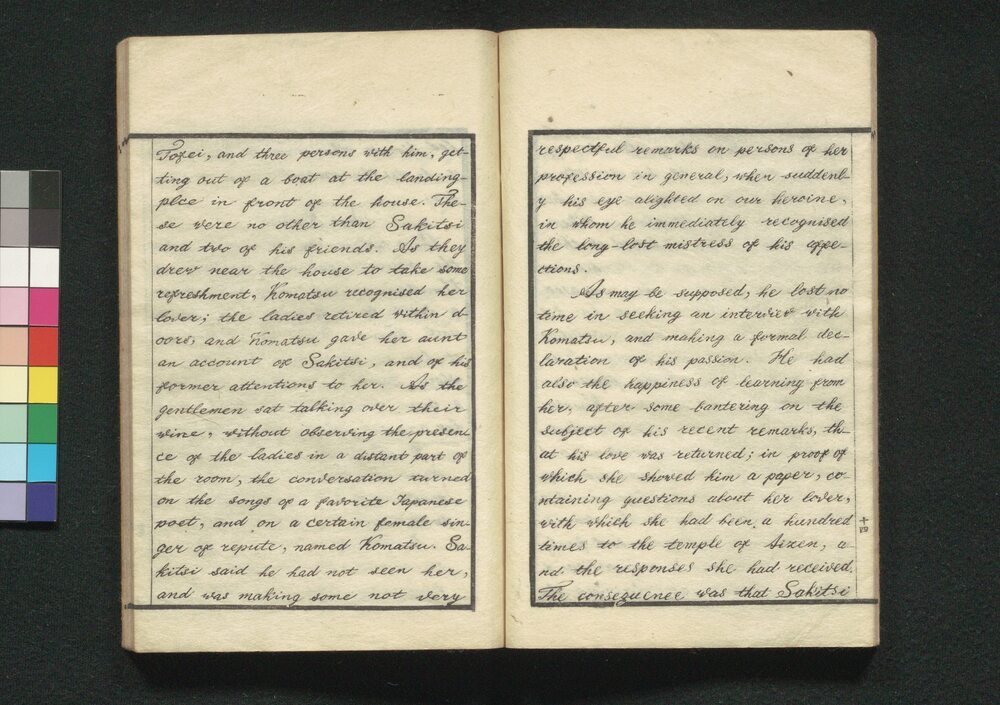 Tofei, and three persons with him, get-
ting out of a boat at the landing-
plce in front of the house. The-
se were no other than Sakitsi
and two of his friends. As they
drew near the house to take some
refreshment, Komatsu recognised her
lover; the ladies retired within d-
oors, and Komatsu gave her aunt
an account of Sakitsi, and of his
former attentions to her. As the
gentlemen sat talking over their
wine, without observing the presen-
ce of the ladies in a distant part of
the room, the conversation turned
on the songs of a favorite Japanese
poet, and on a certain female sin-
ger of repute, named Komatsu. Sa-
kitsi said he had not seen her,
and was making some not very
respectful remarks on persons of her
profession in general, when suddenl-
y his eye alighted on our heroine,
in whom he immediately recognised
the long-lost mistress of his affe-
ctions.
As may be supposed, he lost no
time in seeking an interview with
Komatsu, and making a formal dec-
laration of his passion. He had
also the happiness of learning from
her, after some bantering on the
subject of his recent remarks, th-
at his love was returned; in proof of
which she showed him a paper, co-
ntaining questions about her lover,
with which she had been a hundred
times to the temple of Aizen, a-
nd the responses she had received.
The consequence was that Sakitsi
十四